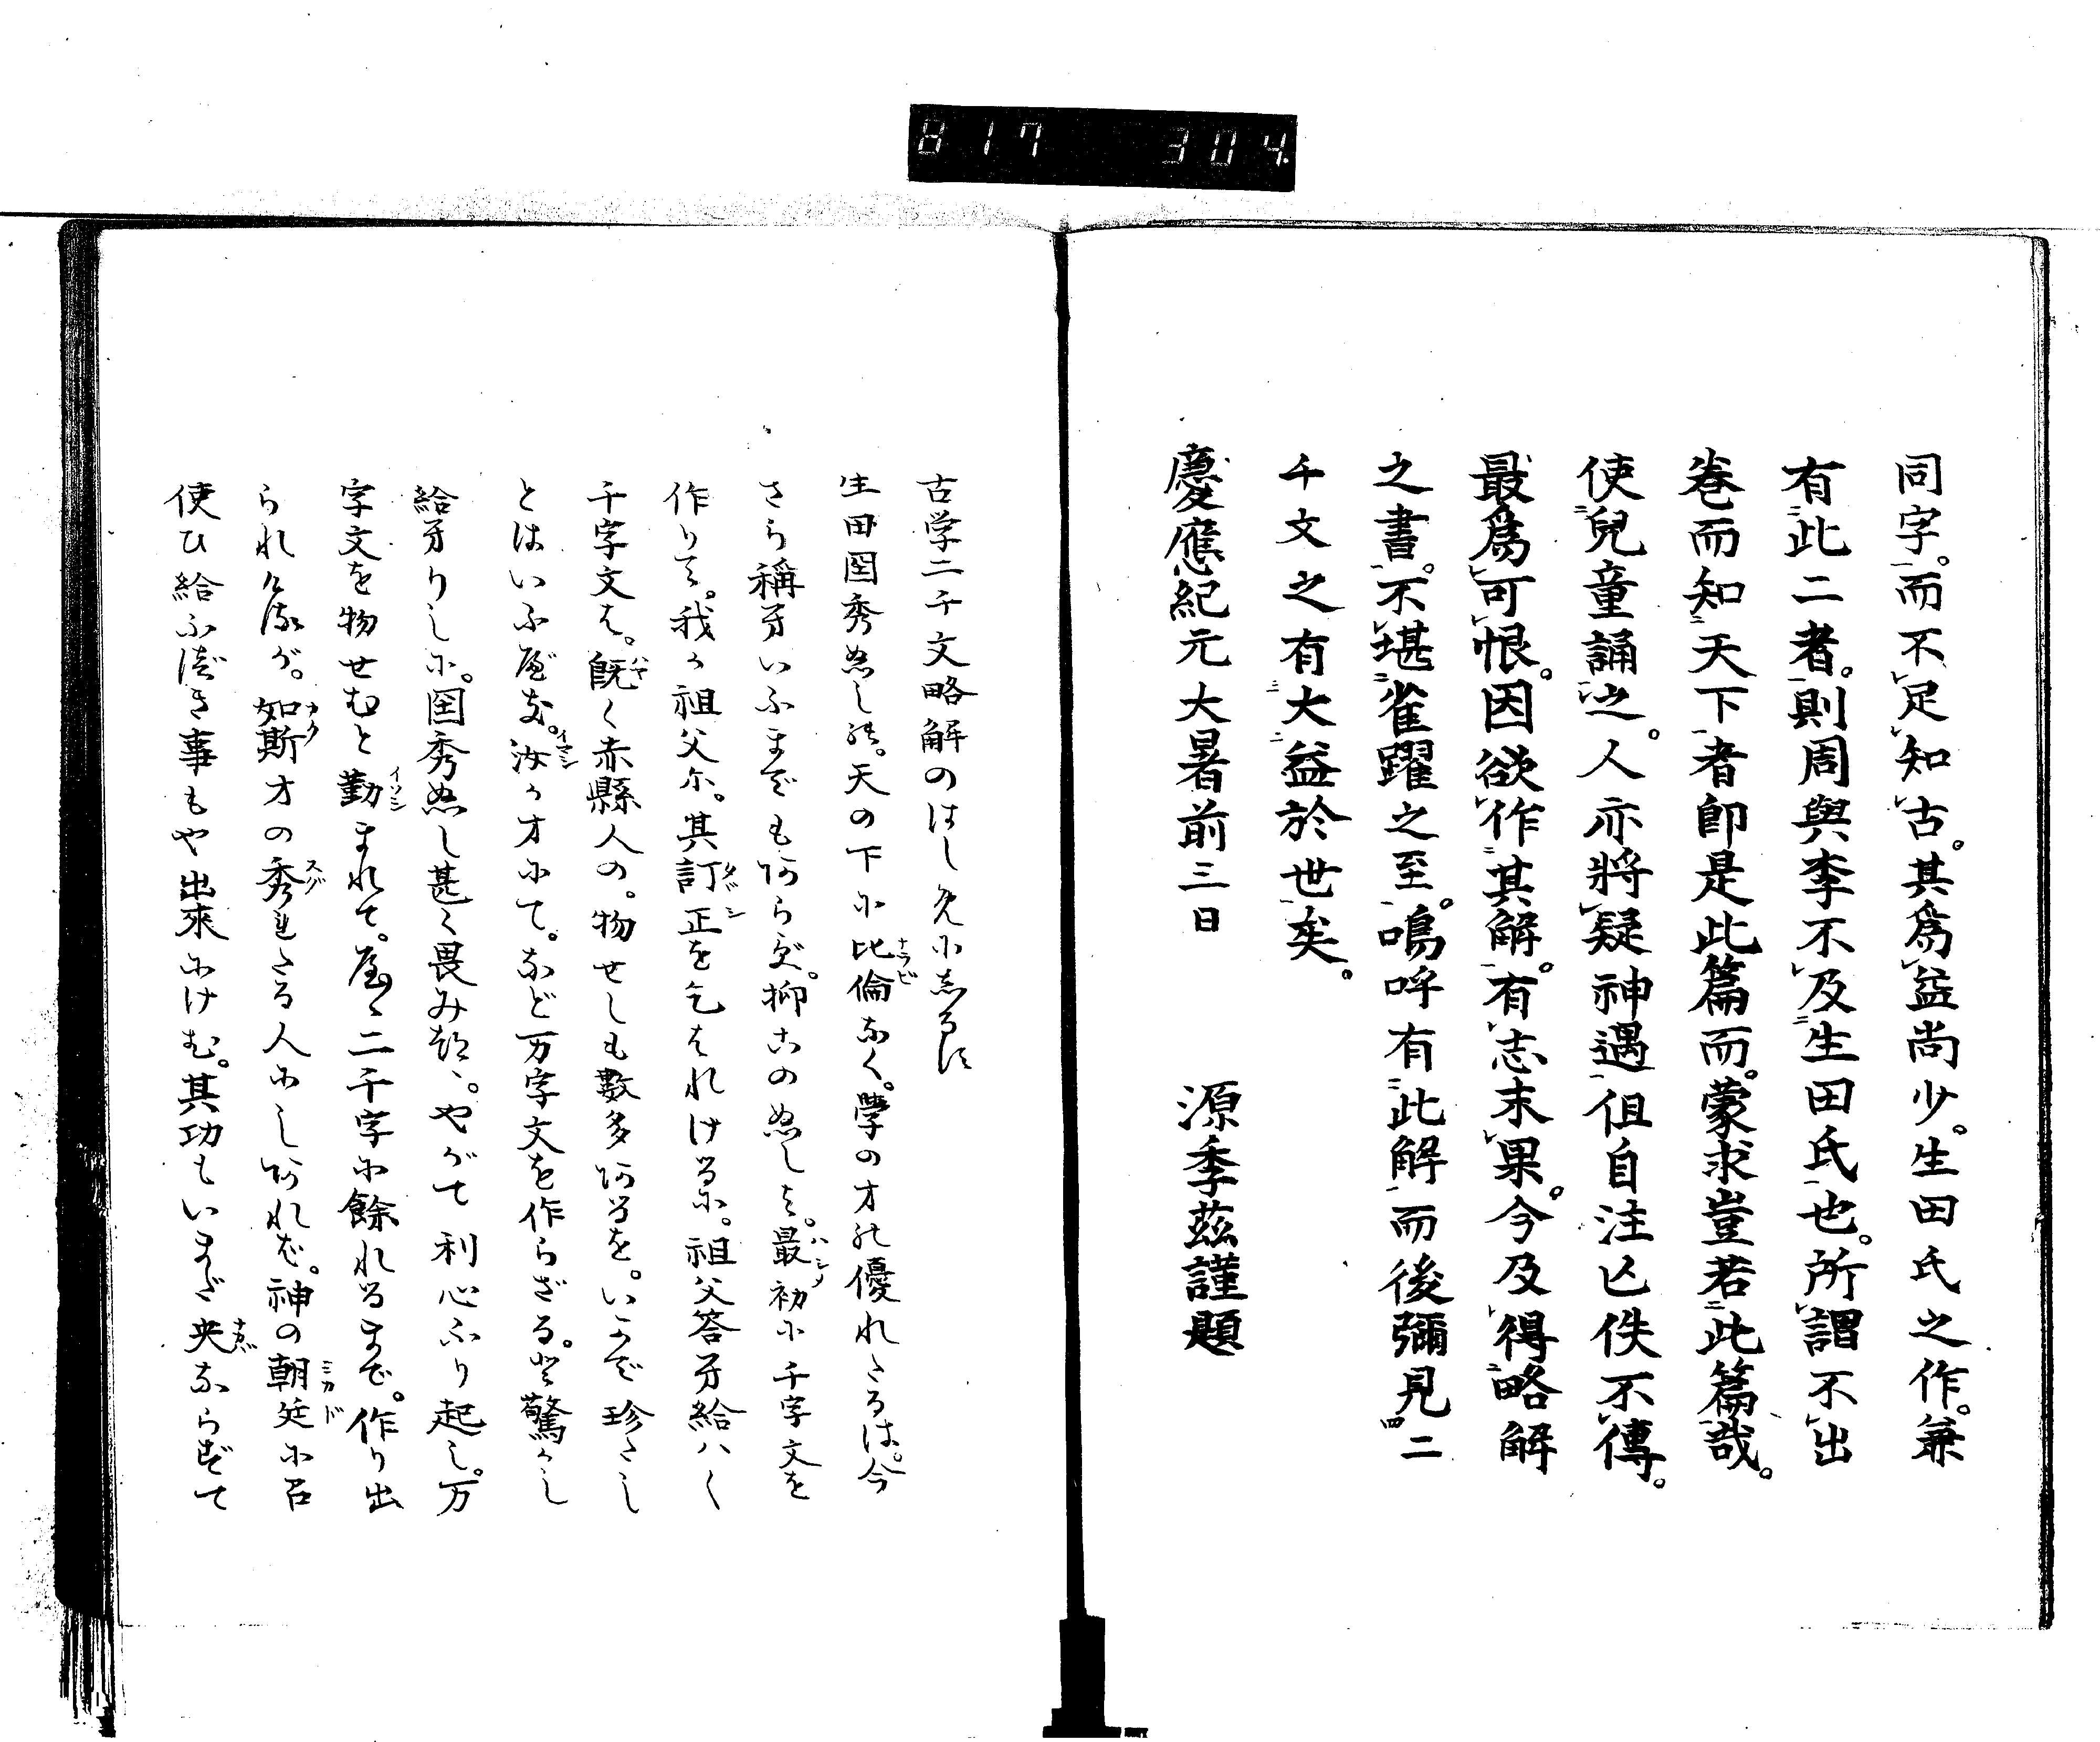 817 304
同字。而不足知古。其爲益尚少。生田氏之作。兼
有此二者。則周與李不及生田氏也。所謂不出
卷而知天下者卽是此篇而。蒙求豈若此篇哉。
使兒童誦之。人亦將疑神遇但自注亡佚不傳。
最爲可恨。因欲作其解。有志末果。今及得略解
之書。不堪雀躍之至。嗚呼有此解而後彌見二
千文之有大益於世矣。
慶應紀元大暑前三日 源季茲謹題
古学二千文略解のはし尓小志るす
生田国秀ぬしハ。天の下に比倫なく。學の才の優れたるは。今
さら稱へいふまでもあらず。抑このぬしよ。最初に千字文を
作りて。我が祖父に。其訂正を乞はれけるに。祖父答へ給はく
千字文は。既く赤縣人の。物せしも數多あるを。いかで珍らし
とはいふべき。汝が才にて。など万字文を作らざる。と驚かし
給へりしに。国秀ぬし甚く畏み。やがて利心ふり起し。万
字文を物せむと勤まれて。二千字に餘れるまで。作り出
られけるが。如斯才の秀れたる人にしあれば。神の朝廷に召
使ひ給ふべき事もや出來にけむ。其功もいまだ央ならずて